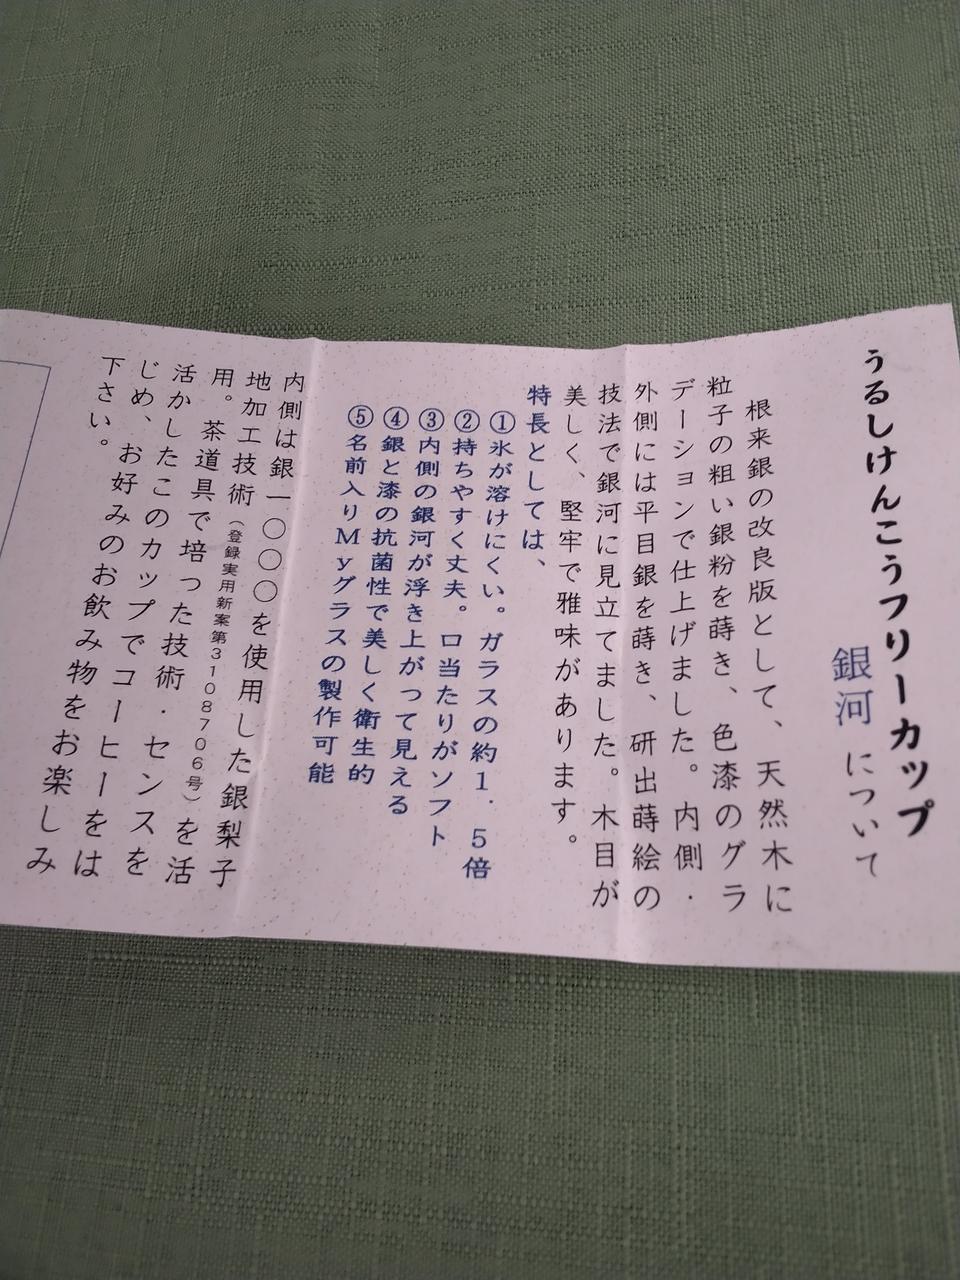 うるしけんこうフリーカップ
銀河 について
根来銀の改良版として、天然木に
粒子の粗い銀粉を蒔き、色漆のグラ
デーションで仕上げました。内側・
外側には平目銀を蒔き、研出蒔絵の
技法で銀河に見立てました。木目が
美しく、堅牢で雅味があります。
特長としては、
①氷が溶けにくい。ガラスの約1.5倍
②持ちやすく丈夫。口当たりがソフト
③内側の銀河が浮き上がって見える
④銀と漆の抗菌性で美しく衛生的
⑤名前入りMyグラスの製作可能
内側は銀一〇〇〇を使用した銀梨子
地加工技術(登録実用新案第3108706号)を活
用。茶道具で培った技術・センスを
活かしたこのカップでコーヒーをは
じめ、お好みのお飲み物をお楽しみ
下さい。